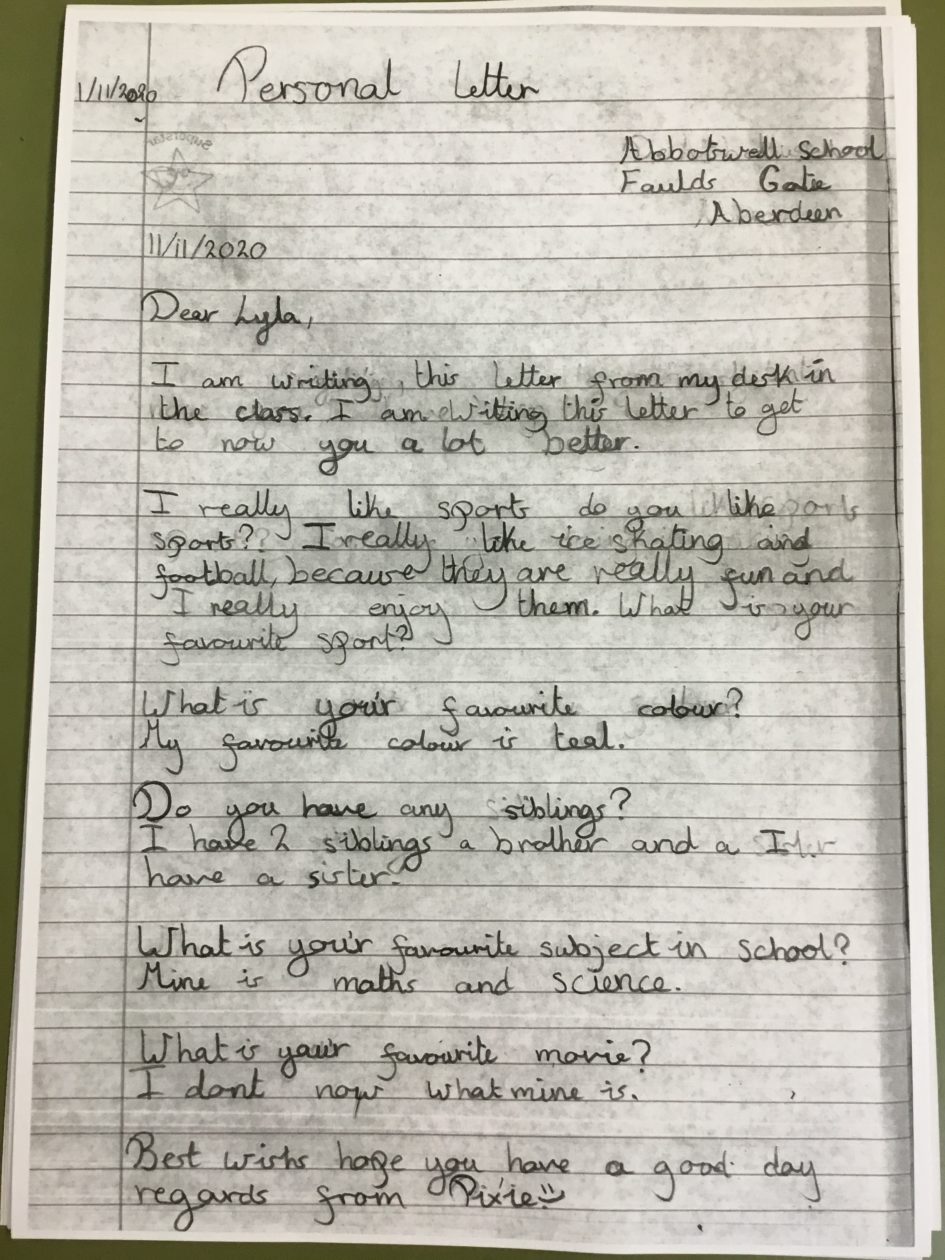 1/11/2020 Personal Letter
Abbotswell School
Faulds Gate
Aberdeen
Superstar
11/11/2020
Dear Lyla,
I am writing this letter from my desk in
the class. I am writing this letter to get
to now you a lot better.
I really like sports do you like sports
sports? I really like ice skating and
football, because they are really fun and
I really enjoy them. What is your
favourite sport?
What is your favourite colour?
My favourite colour is teal.
Do you have any siblings?
I have 2 siblings a brother and a
have a sister.
What is your favourite subject in school?
Mine is maths and science.
What is your favourite movie?
I dont now what mine is.
Best wishs hope you have a good day
regards from Pixie